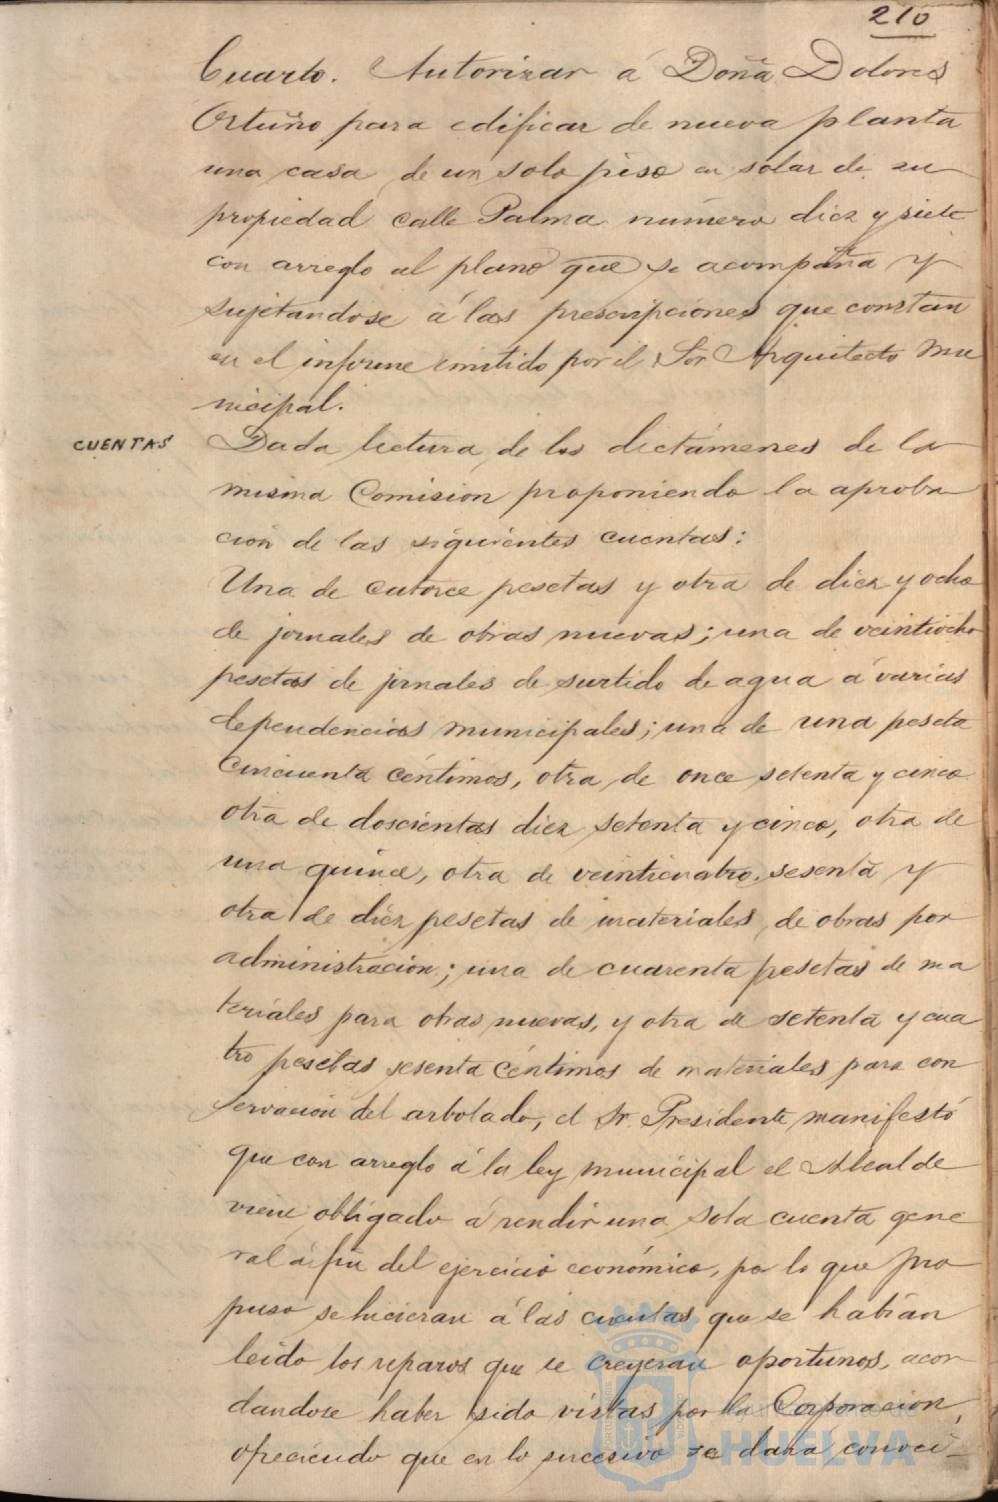 210
Cuarto. Autorizar á Doña Dolores
Ortuño para edificar de nueva planta
una casa de un solo piso en solar de su
propiedad calle Palma número diez y siete
con arreglo al plano que se acompaña y
sujetandose á las prescripciones que constan
en el informe emitido por el Sor Arquitecto Mu
nicipal.
CUENTAS
Dada lectura de los dictámenes de la
misma Comision proponiendo la aproba
ción de las siguientes cuentas:
Una de catorce pesetas y otra de diez y ocho
de jornales de obras nuevas; una de veintiocho
pesetas de jornales de surtido de agua á varias
dependencias municipales; una de una peseta
cincuenta céntimos, otra de once setenta y cinco
otra de doscientas diez setenta y cinco, otra de
una quince, otra de veinticuatro sesenta y
otra de diez pesetas de materiales de obras por
administración; una de cuarenta pesetas de ma
teriales para obras nuevas, y otra de setenta y cua
tro pesetas sesenta céntimos de materiales para con
servación del arbolado, el Sr. Presidente manifestó
que con arreglo á la ley municipal el Alcalde
viene obligado á rendir una sola cuenta gene
ral á fin del ejercicio económico, por lo que pro
puso se hicieran á las cuentas que se habían
leido los reparos que se creyeran oportunos, acor
dandose haber sido vistas por la Corporación,
ofreciendo que en lo sucesivo se dara conoci-
Ayuntamiento de
HUELVA